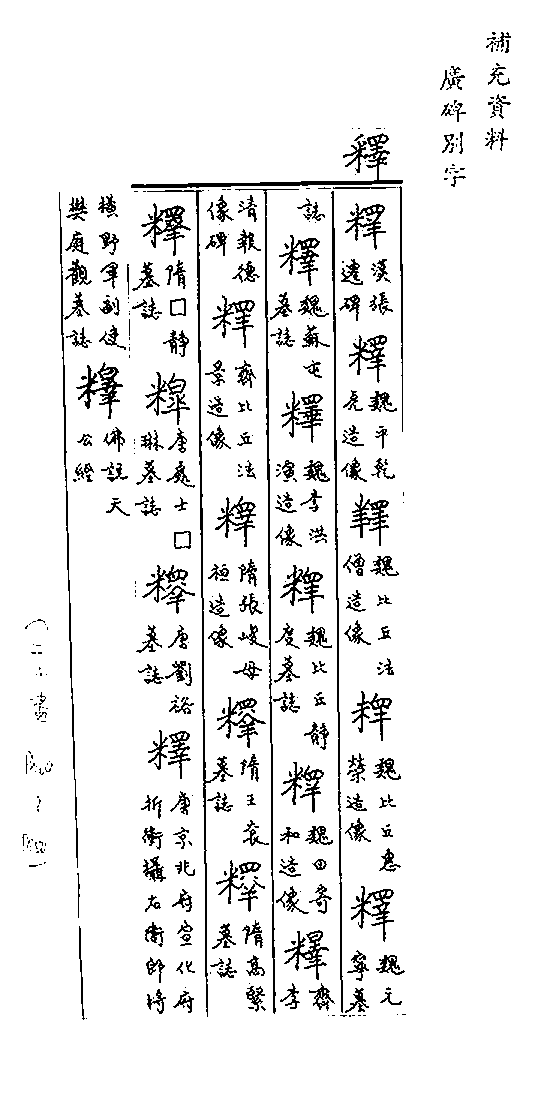 補充資料
廣碑別字
釋
釋漢張遷碑釋魏平乾虎造像釋魏比丘法僧造像釋魏比丘惠榮造像釋魏元寧墓
誌釋魏蘇屯墓誌釋魏李洪演造像釋魏比丘靜度墓誌釋魏田寄和造像釋齊李
清報德像碑釋齊比丘法景造像釋隋張峻母桓造像釋隋王袞墓誌釋隋高緊墓誌
釋隋□靜墓誌釋唐處士□琳墓誌釋唐劉裕墓誌釋唐京兆府宣化府折衝攝右衛郎將
橫野軍副使樊庭觀墓誌釋佛說天公經